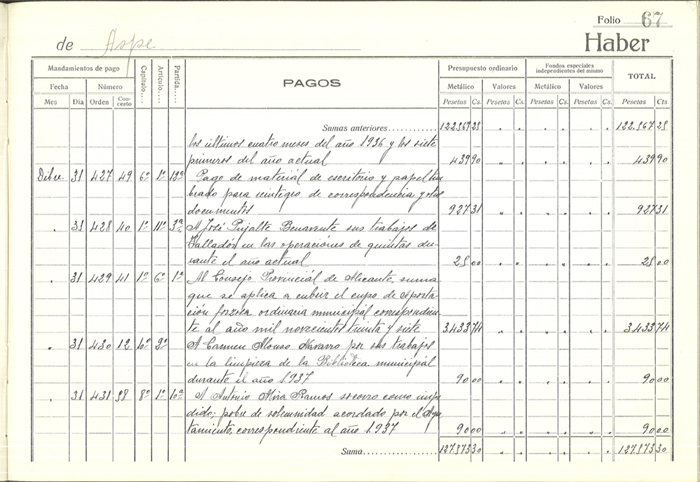 Folio 67
de Aspe Haber
Mandamientos de pago Capítulo Artículo Partida PAGOS Presupuesto ordinario Fondos especiales independientes del mismo TOTAL
Fecha Número Metálico Valores Metálico Valores
Mes Día Orden Concepto Pesetas Cs. Pesetas Cs. Pesetas Cs. Pesetas Cs. Pesetas Cts.
Sumas anteriores
los últimos cuatro meses del año 1936 y los siete
primeros del año actual 439 90 439 90
Dicbre 31 427 49 6º 1º Pago de material de escritorio y papel tim
brado para reintegro de correspondencia y otros
documentos 927 31 927 31
31 428 40 1º 11º 3ª A José Pujalte Benavente sus trabajos de
Tallador en las operaciones de quintas du-
rante el año actual 25 00 25 00
31 429 41 1º 6º 1ª Al Consejo Provincial de Alicante, suma
que se aplica a cubrir el cupo de Aporta
ción forzosa ordinaria municipal correspondien
te al año mil novecientos treinta y siete 3433 74 3433 74
31 430 12 A Carmen Alonso Navarro por sus trabajos
en la limpieza de la Biblioteca municipal
durante el año 1937 90 00 90 00
31 431 98 8º 1º A Antonio Mira Ramos socorro como impe
dido; pobre de solemnidad acordado por el Ayun
tamiento, correspondiente al año 1937 90 00 90 00
Suma 127573 30 127573 30